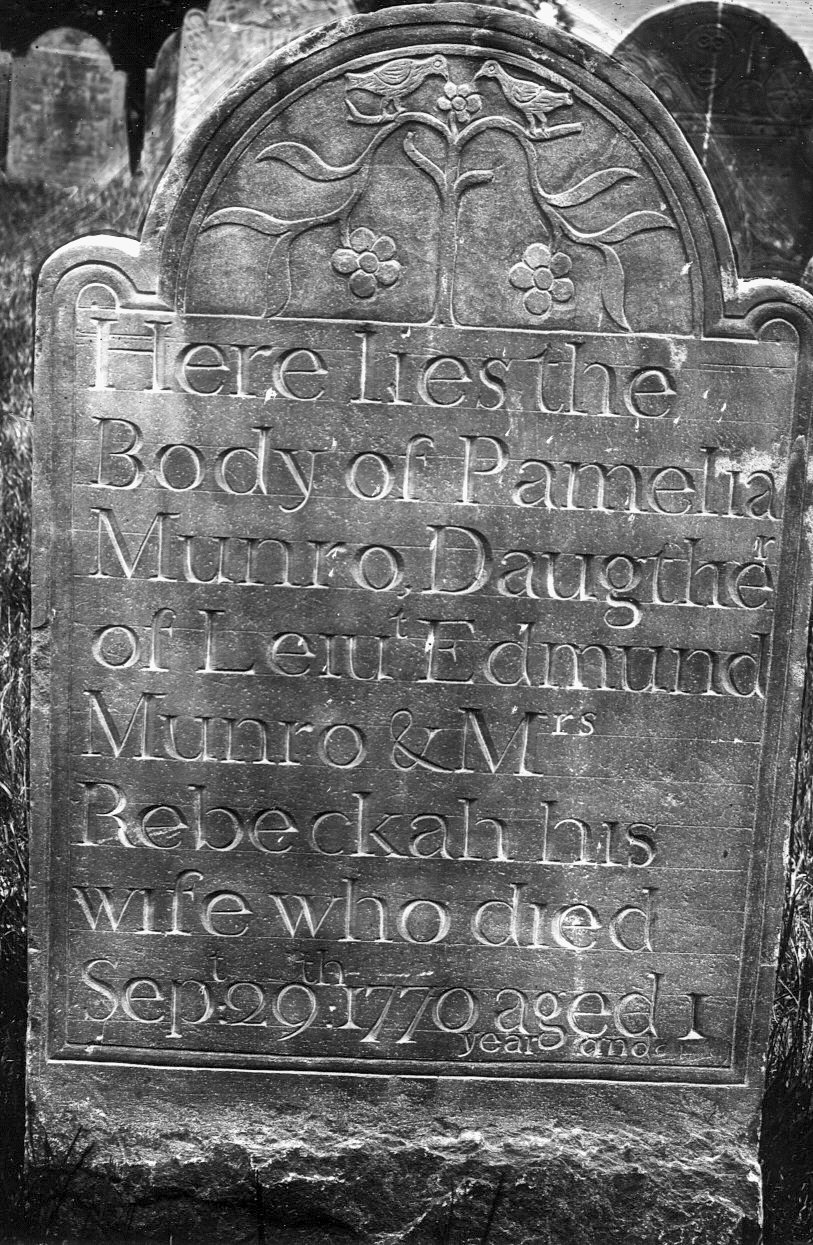 Here lies the
Body of Pamelia
Munro, Daugther
of Leiut Edmund
Munro & Mrs
Rebeckah his
wife who died
Sept. 29th. 1770 aged 1
year and